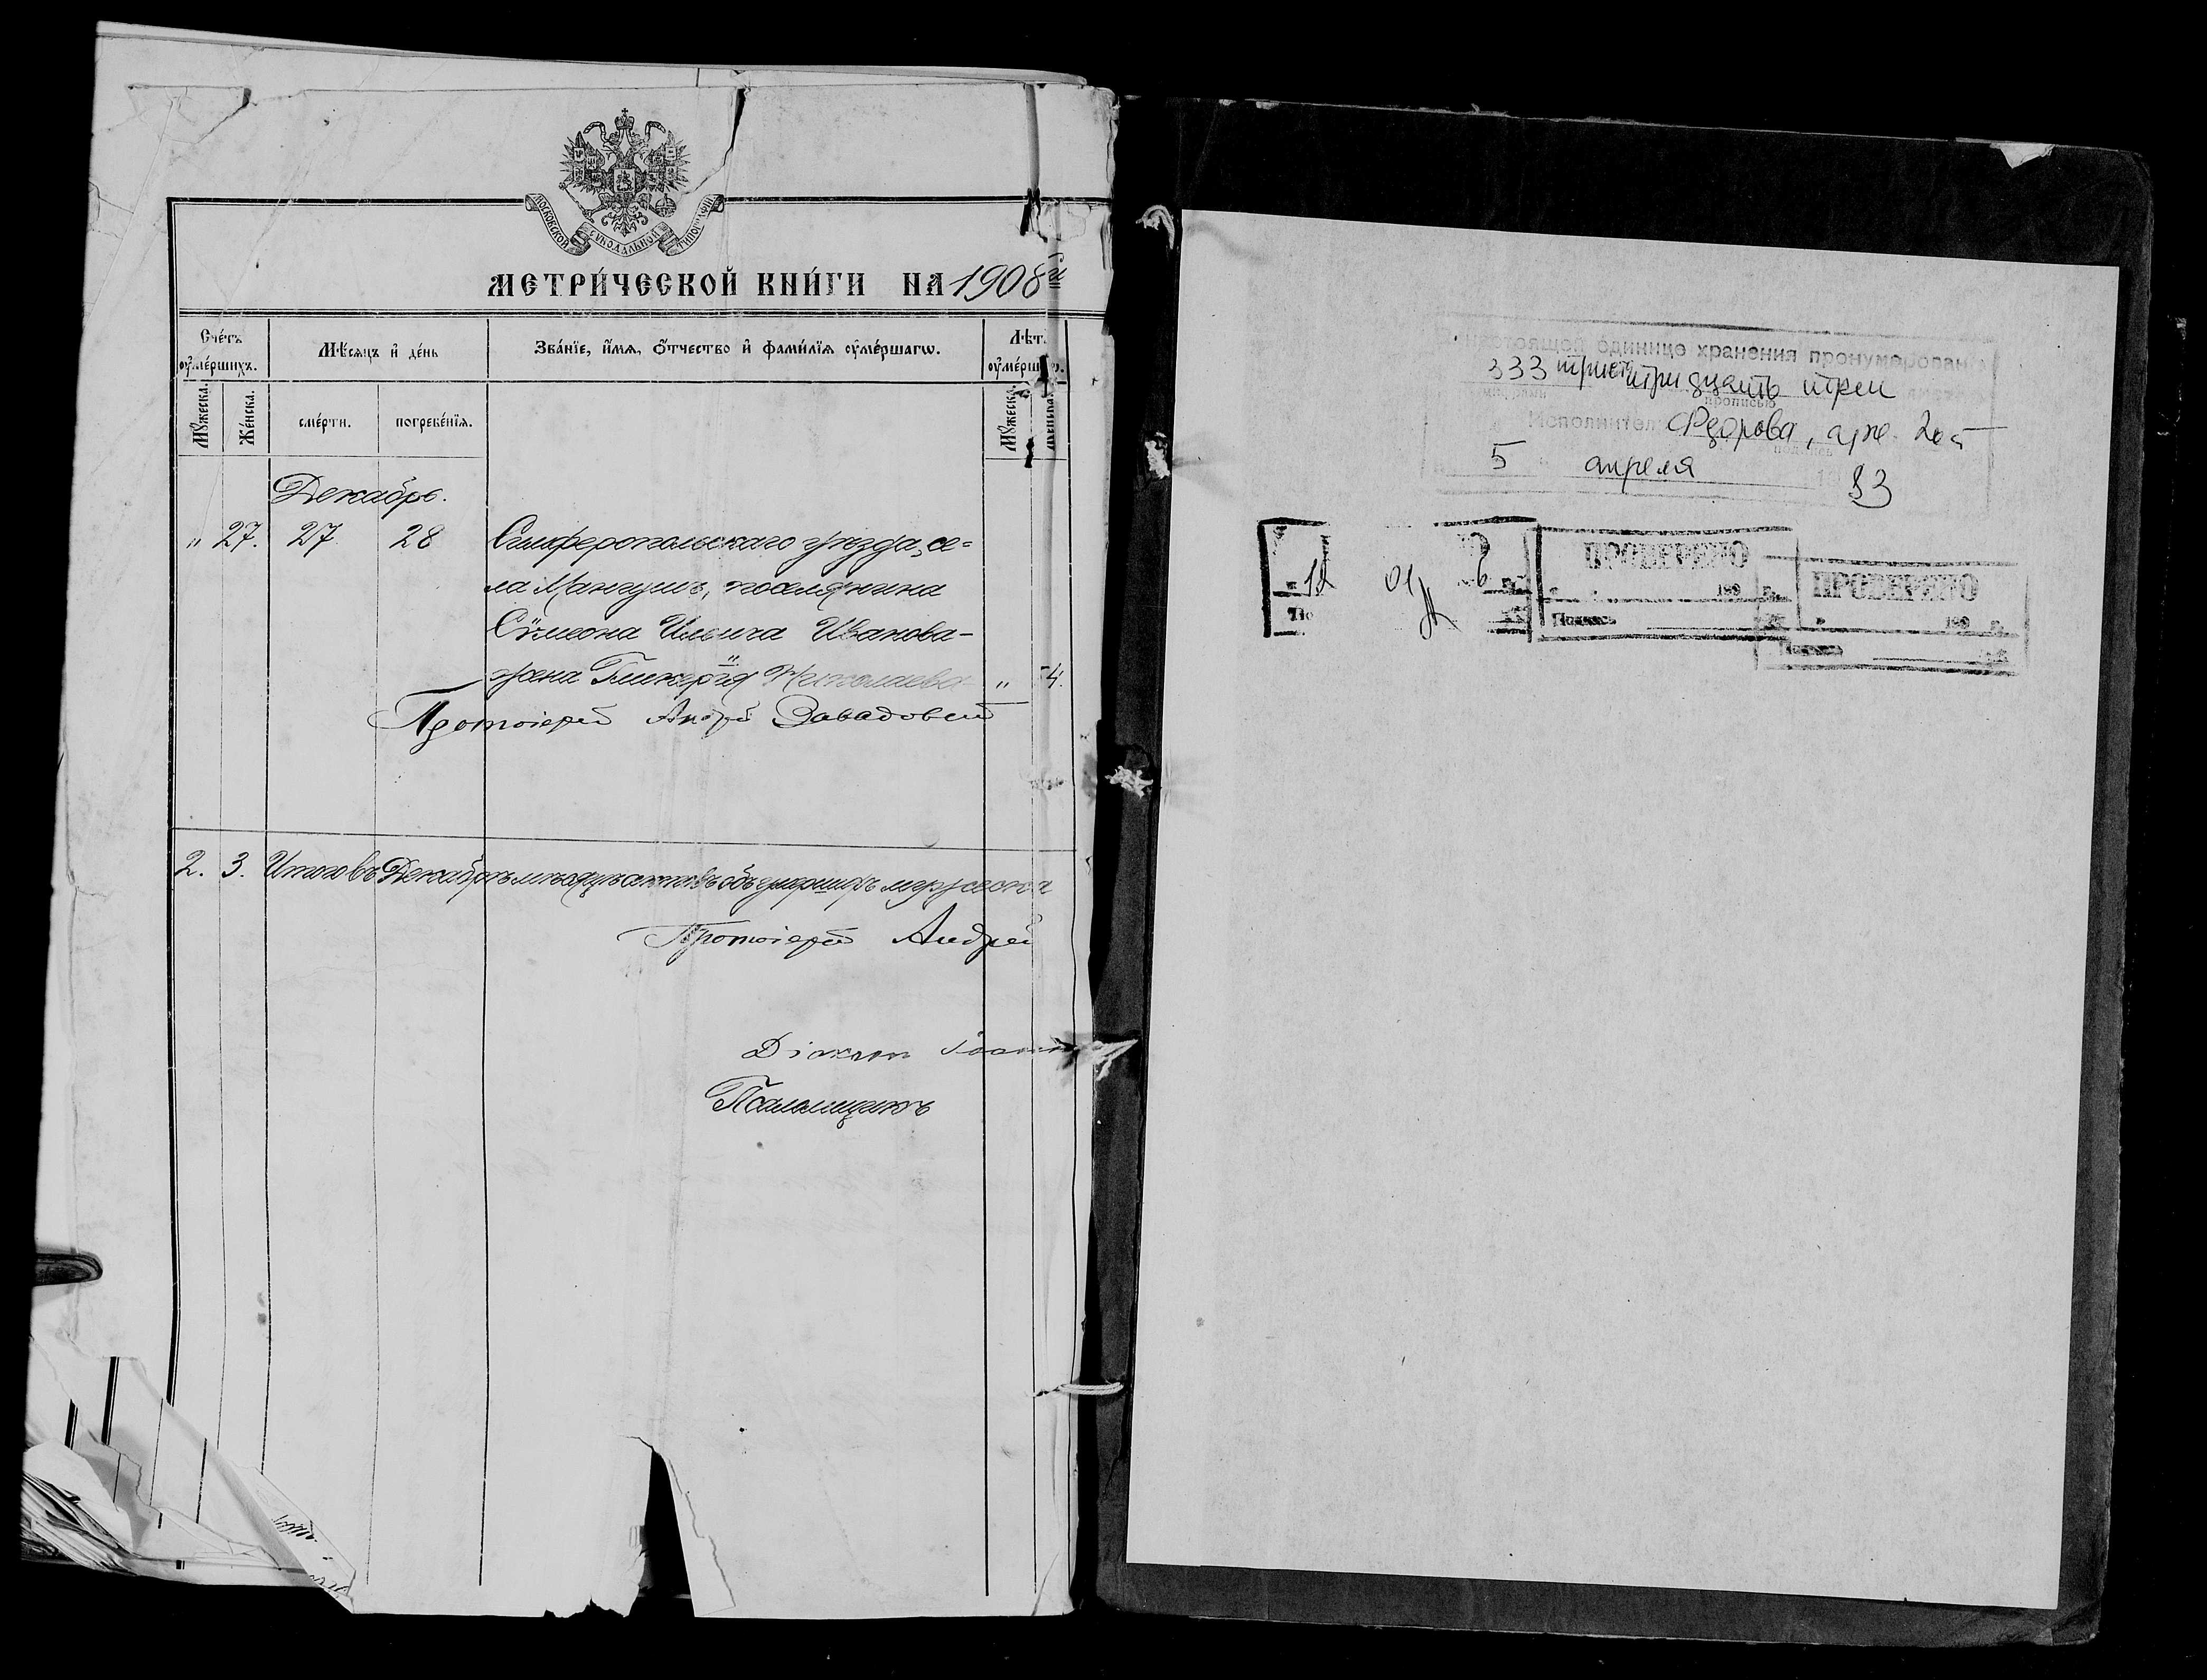 МОСКОВСКОЙ СѴНОДАЛЬНОЙ ТИПОГРАФІИ
МЕТРИ́ЧЕСКОЙ КНИ́ГИ НА 1908й
Сче́тъ ᲂу҆ме́ршихъ.
Мѣ́сѧцъ и҆ де́нь
Зва́нїе, и҆́мѧ, ѻ҆́тчество и҆ фами́лїѧ ᲂу҆ме́ршагѡ.
Лѣ́т. ᲂу҆ме́рш
Мꙋ́жеска.
Же́нска.
сме́рти.
погребе́нїѧ.
Мꙋ́жеска.
Же́нска.
Декабрь.
" 27. 27 28 Симферопольскаго уѣзда, се=
ла Мангушъ, поселянина
Сѵмеона Ильича Иванова-
жена Гликерія Николаева " 4.
Протоіерей Андрей Завадовскій
2. 3. Итого въ Декабрѣ мѣсяцѣ умершихъ мужеска
Протоіерей Андрей
Діаконъ Іоаннъ
Псаломщикъ
настоящей единице хранения пронумеровано
333 триста тридцать три
прописью
Исполнитель Федорова, арх.
подпись
5 апреля 83
12 01 6 г.
ПРОВЕРЕНО
199 г.
Подпись
ПРОВЕРЕНО
199 г.
Подпись